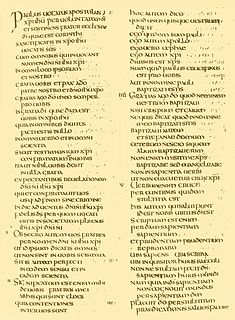 PAULUS UOCATUS APOSTOLUS
XPI IHU PER UOLUNTATEM DI
ET SOSTENES FRATER ECCLESIAE
DI QUAE EST CORINTHI
SANCTIFICATIS IN XPO IHU
UOCATIS SCIS
CUM OMNIBUS QUI INUOCANT
NOMEN DNI NOSTRI IHU XPI
IN OMNI LOCO IPSORUM
ET NOSTRO
GRATIA UOBIS ET PAX A DO
PATRE NOSTRO ET DNO IHU XPO
GRATIAS AGO DO MEO SEMPER
PRO UOBIS
IN GRATIA DI QUAE DATA EST
UOBIS IN XPO IHU
QUIA IN OMNIBUS DIUITES
FACTI ESTIS IN ILLO
IN OMNI UERBO ET IN OMNI
SCIENTIA
SICUT TESTIMONIUM XPI
CONFIRMATUM EST IN UOBIS
ITA UT NIHIL UOBIS DESIT
IN ULLA GRATIA
EXPECTANTIBUS REUELATIONEM
DNI NOSTRI IHU XPI
QUI ET CONFIRMABIT UOS
USQUE AD FINEM SINE CRIMINE
IN DIE ADUENTUS DNI NOSTRI IHU XPI
FIDELIS DS PER QUEM UOCATI
ESTIS IN SOCIETATEM FILII EIUS
IHU XPI DNI NOSTRI
OBSECRO AUTEM UOS FRATRES
PER NOMEN DNI NOSTRI IHU XPI
UT ID IPSUM DICATIS OMNES
ET NON SINT IN UOBIS SCISMATA
SITIS AUTEM PERFECTI
IN EODEM SENSU ET IN
EADEM SCIENTIA
SIGNIFICATUM EST ENIM MIHI
DE UOBIS FRATRES MEI
AB HIS QUI SUNT CLOES
QUIA CONTENTIONES
INTER UOS SUNT
HOC AUTEM DICO
QUOD UNUSQUISQUE UESTRUM
DICIT
EGO QUIDEM SUM PAULI
EGO AUTEM APOLLO
EGO UERO CEPHAE
EGO AUTEM XPI
DIUISUS EST XPS
NUMQUID PAULUS CRUCIFIXUS
EST PRO UOBIS
AUT IN NOMINE PAULI
BAPTIZATI ESTIS
GRATIAS AGO DO QUOD NEMINEM
UESTRUM BAPTIZAUI
NISI CRISPUM ET GAIUM
NE QUIS DICAT QUOD IN NOMINE
MEO BAPTIZATI ESTIS
BAPTIZAUI AUTEM
ET STEPHANAE DOMUM
CETERUM NESCIO SI QUEM
ALIUM BAPTIZAUERIM
NON ENIM MISIT ME XPS
BAPTIZARE SED EUANGELIZARE
NON IN SAPIENTIA UERBI
UT NON EUACUETUR CRUX XPI
UERBUM ENIM CRUCIS
PEREUNTIBUS QUIDEM
STULTITIA EST
HIS AUTEM QUI SALUI FIUNT
ID EST NOBIS UIRTUS DI EST
SCRIPTUM EST ENIM
PERDAM SAPIENTIAM
SAPIENTIUM
ET PRUDENTIAM PRUDENTIUM
REPROBABO
UBI SAPIENS UBI SCRIBA
UBI INQUISITOR HUIUS SAECULI
NONNE STULTAM FECIT DS
SAPIENTIAM HUIUS MUNDI
NAM QUIA IN DI SAPIENTIA
NON COGNOUIT MUNDUS
PER SAPIENTIAM DM
PLACUIT DO PER STULTITIAM
PRAEDICATIONIS SALUOS FACERE